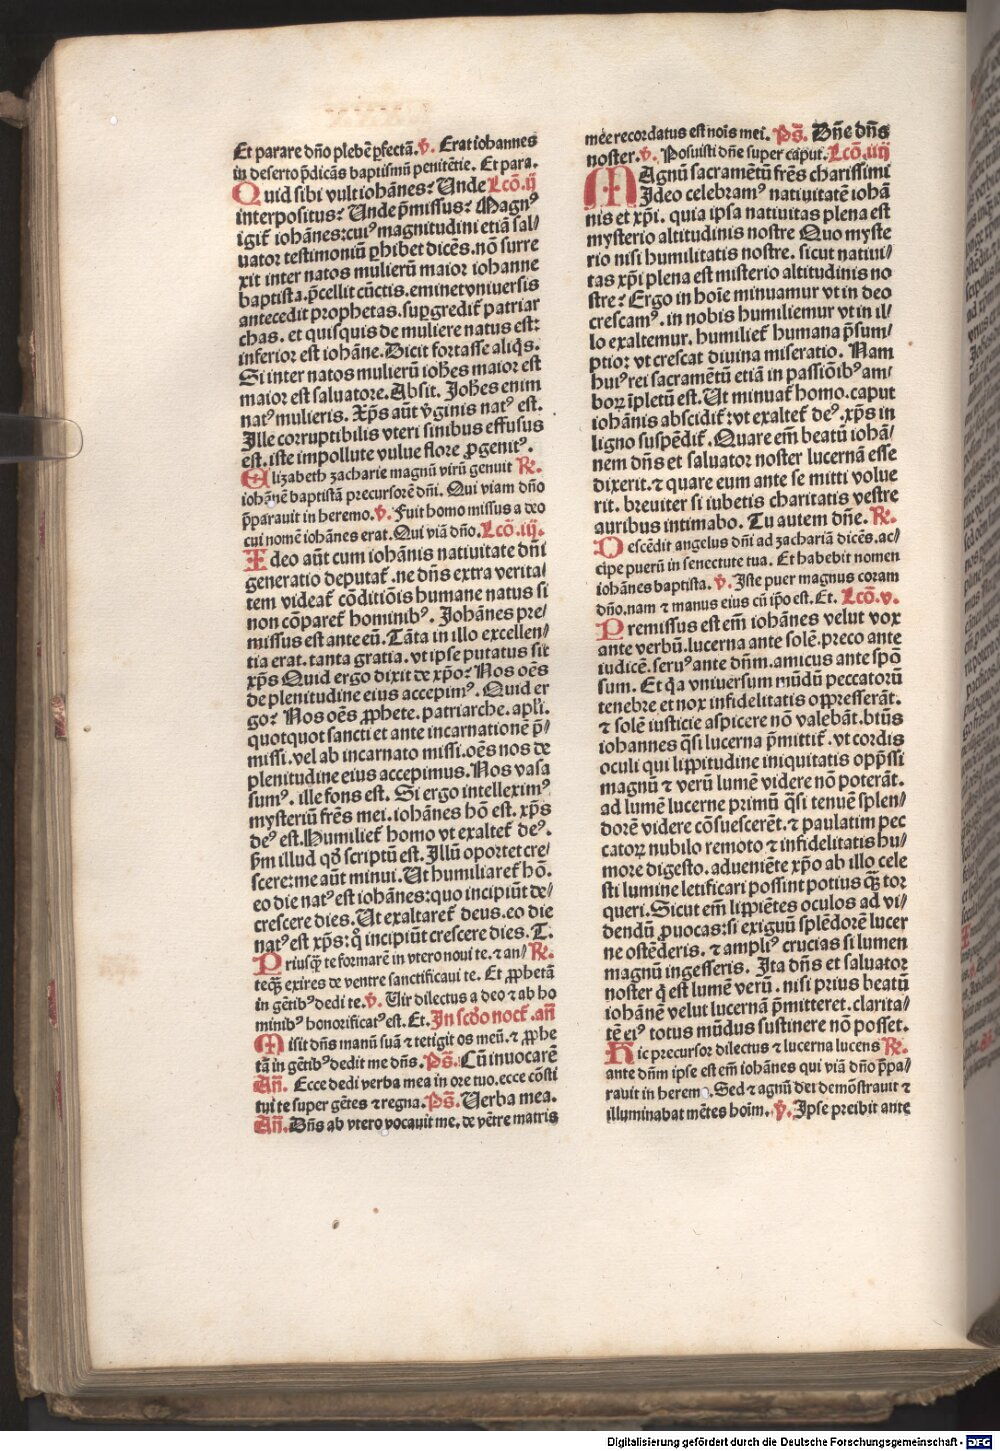 Et parare dño plebē ꝑfectā. ℣. Erat iohannes
in deserto p̄dicās baptismū penitētie. Et para.
Quid sibi vult iohānes? Unde Lcō.ij
interpositus? Unde p̄missus? Magnꝰ
igit᷑ iohānes: cuiꝰ magnitudini etiā sal⸗
uator testimoniū ꝑhibet dicēs. nō surre
xit inter natos mulierū maior iohanne
baptista. p̄cellit cūctis. eminet vniuersis
antecedit prophetas. suꝑgredit᷑ patriar
chas. et quisquis de muliere natus est:
inferior est iohāne. Dicit fortasse aliqs.
Si inter natos mulierū ioh̄es maior est
maior est saluatore. Absit. Joh̄es enim
natꝰ mulieris. Xp̄s aūt v̄ginis natꝰ est.
Ille corruptibilis vteri sinibus effusus
est. iste impollute vulue flore ꝓgenitꝰ.
Elizabeth zacharie magnū virū genuit ℟.
iohānē baptistā precursorē dn̄i. Qui viam dño
p̄parauit in heremo. ℣. Fuit homo missus a deo
cui nomē iohānes erat. Qui viā dño. Lcō.iij.
Ideo aūt cum iohānis natiuitate dn̄i
generatio deputat᷑. ne dn̄s extra verita⸗
tem videat᷑ cōditiōis humane natus si
non cōparet᷑ hominibꝰ. Johānes pre⸗
missus est ante eū. Tāta in illo excellen⸗
tia erat. tanta gratia. vt ipse putatus sit
xp̄s Quid ergo dixit de xp̄o? Nos oēs
de plenitudine eius accepimꝰ. Quid er
go? Nos oēs ꝓphete. patriarche. apl̄i.
quotquot sancti et ante incarnationē p̄⸗
missi. vel ab incarnato missi. oēs nos de
plenitudine eius accepimus. Nos vasa
sumꝰ. ille fons est. Si ergo intelleximꝰ
mysteriū fr̄es mei. iohānes hō est. xp̄s
deꝰ est. Humiliet᷑ homo vt exaltet᷑ deꝰ.
p̄m illud qð scriptū est. Illū oportet cre⸗
scere: me aūt minui. Ut humiliaret᷑ hō.
eo die natꝰ est iohānes: quo incipiūt de⸗
crescere dies. Ut exaltaret᷑ deus. eo die
natꝰ est xp̄s: q̊ incipiūt crescere dies. T.
Priusꝗ̄ te formarē in vtero noui te. ⁊ an⸗ ℟.
teꝗ̄ exires de ventre sanctificaui te. Et ꝓphetā
in gētibꝰ dedi te. ℣. Uir dilectus a deo ⁊ ab ho
minibꝰ honorificatꝰ est. Et. In scd̄o noct᷑. an̄
Misit dn̄s manū suā ⁊ tetigit os meū. ⁊ ꝓphe
tā in gētibꝰ dedit me dn̄s. Ps̄. Cū inuocarē
An̄. Ecce dedi verba mea in ore tuo. ecce cōsti
tui te super gētes ⁊ regna. Ps̄. Uerba mea.
An̄. Dn̄s ab vtero vocauit me. de vētre matris
mee recordatus est nois̄ mei. Ps̄. Dn̄e dn̄s
noster. ℣. Posuisti dn̄e super caput. Lcō.iiij
Magnū sacramētū fr̄es charissimi
Ideo celebramꝰ natiuitatē iohā
nis et xp̄i. quia ipsa natiuitas plena est
mysterio altitudinis nostre Quo myste
rio nisi humilitatis nostre. sicut natiui⸗
tas xp̄i plena est misterio altitudinis no
stre? Ergo in hoīe minuamur vt in deo
crescamꝰ. in nobis humiliemur vt in il⸗
lo exaltemur. humiliet᷑ humana p̄sum⸗
ptio: vt crescat diuina miseratio. Nam
huiꝰ rei sacramētū etiā in passiōibꝰ am⸗
boꝝ īpletū est. Ut minuat᷑ homo. caput
iohānis abscidit᷑: vt exaltet᷑ deꝰ. xp̄s in
ligno suspēdit᷑. Quare em̄ beatū iohā⸗
nem dn̄s et saluator noster lucernā esse
dixerit. ⁊ quare eum ante se mitti volue
rit. breuiter si iubetis charitatis vestre
auribus intimabo. Tu autem dn̄e. ℟.
Descēdit angelus dn̄i ad zachariā dicēs. ac⸗
cipe puerū in senectute tua. Et habebit nomen
iohānes baptista. ℣. Iste puer magnus coram
dño. nam ⁊ manus eius cū ip̄o est. Et. Lcō.v.
Premissus est em̄ iohānes velut vox
ante verbū. lucerna ante solē. preco ante
iudicē. seruꝰ ante dn̄m. amicus ante spō
sum. Et q̄a vniuersum mūdū peccatorū
tenebre et nox infidelitatis oppresserāt.
⁊ solē iusticie aspicere nō valebāt. btūs
iohannes q̄si lucerna p̄mittit᷑. vt cordis
oculi qui lippitudine iniquitatis opp̄ssi
magnū ⁊ verū lumē videre nō poterāt.
ad lumē lucerne primū q̄si tenuē splen⸗
dorē videre cōsuescerēt. ⁊ paulatim pec
catoꝝ nubilo remoto ⁊ infidelitatis hu⸗
more digesto. adueniēte xp̄o ab illo cele
sti lumine letificari possint potius ꝗ̄ tor
queri. Sicut em̄ lippiētes oculos ad vi⸗
dendū ꝓuocas: si exiguū splēdorē lucer
ne ostēderis. ⁊ ampliꝰ crucias si lumen
magnū ingesseris. Ita dn̄s et saluator
noster q̇ est lumē verū. nisi prius beatū
iohānē velut lucernā p̄mitteret. clarita⸗
tē eiꝰ totus mūdus sustinere nō posset.
Hic precursor dilectus ⁊ lucerna lucens ℟.
ante dn̄m ipse est em̄ iohānes qui viā dño p̄pa⸗
rauit in heremo. Sed ⁊ agnū dei demōstrauit ⁊
illuminabat mētes hoim̄. ℣. Ipse preibit ante
Digitalisierung gefördert durch die Deutsche Forschungsgemeinschaft - DFG